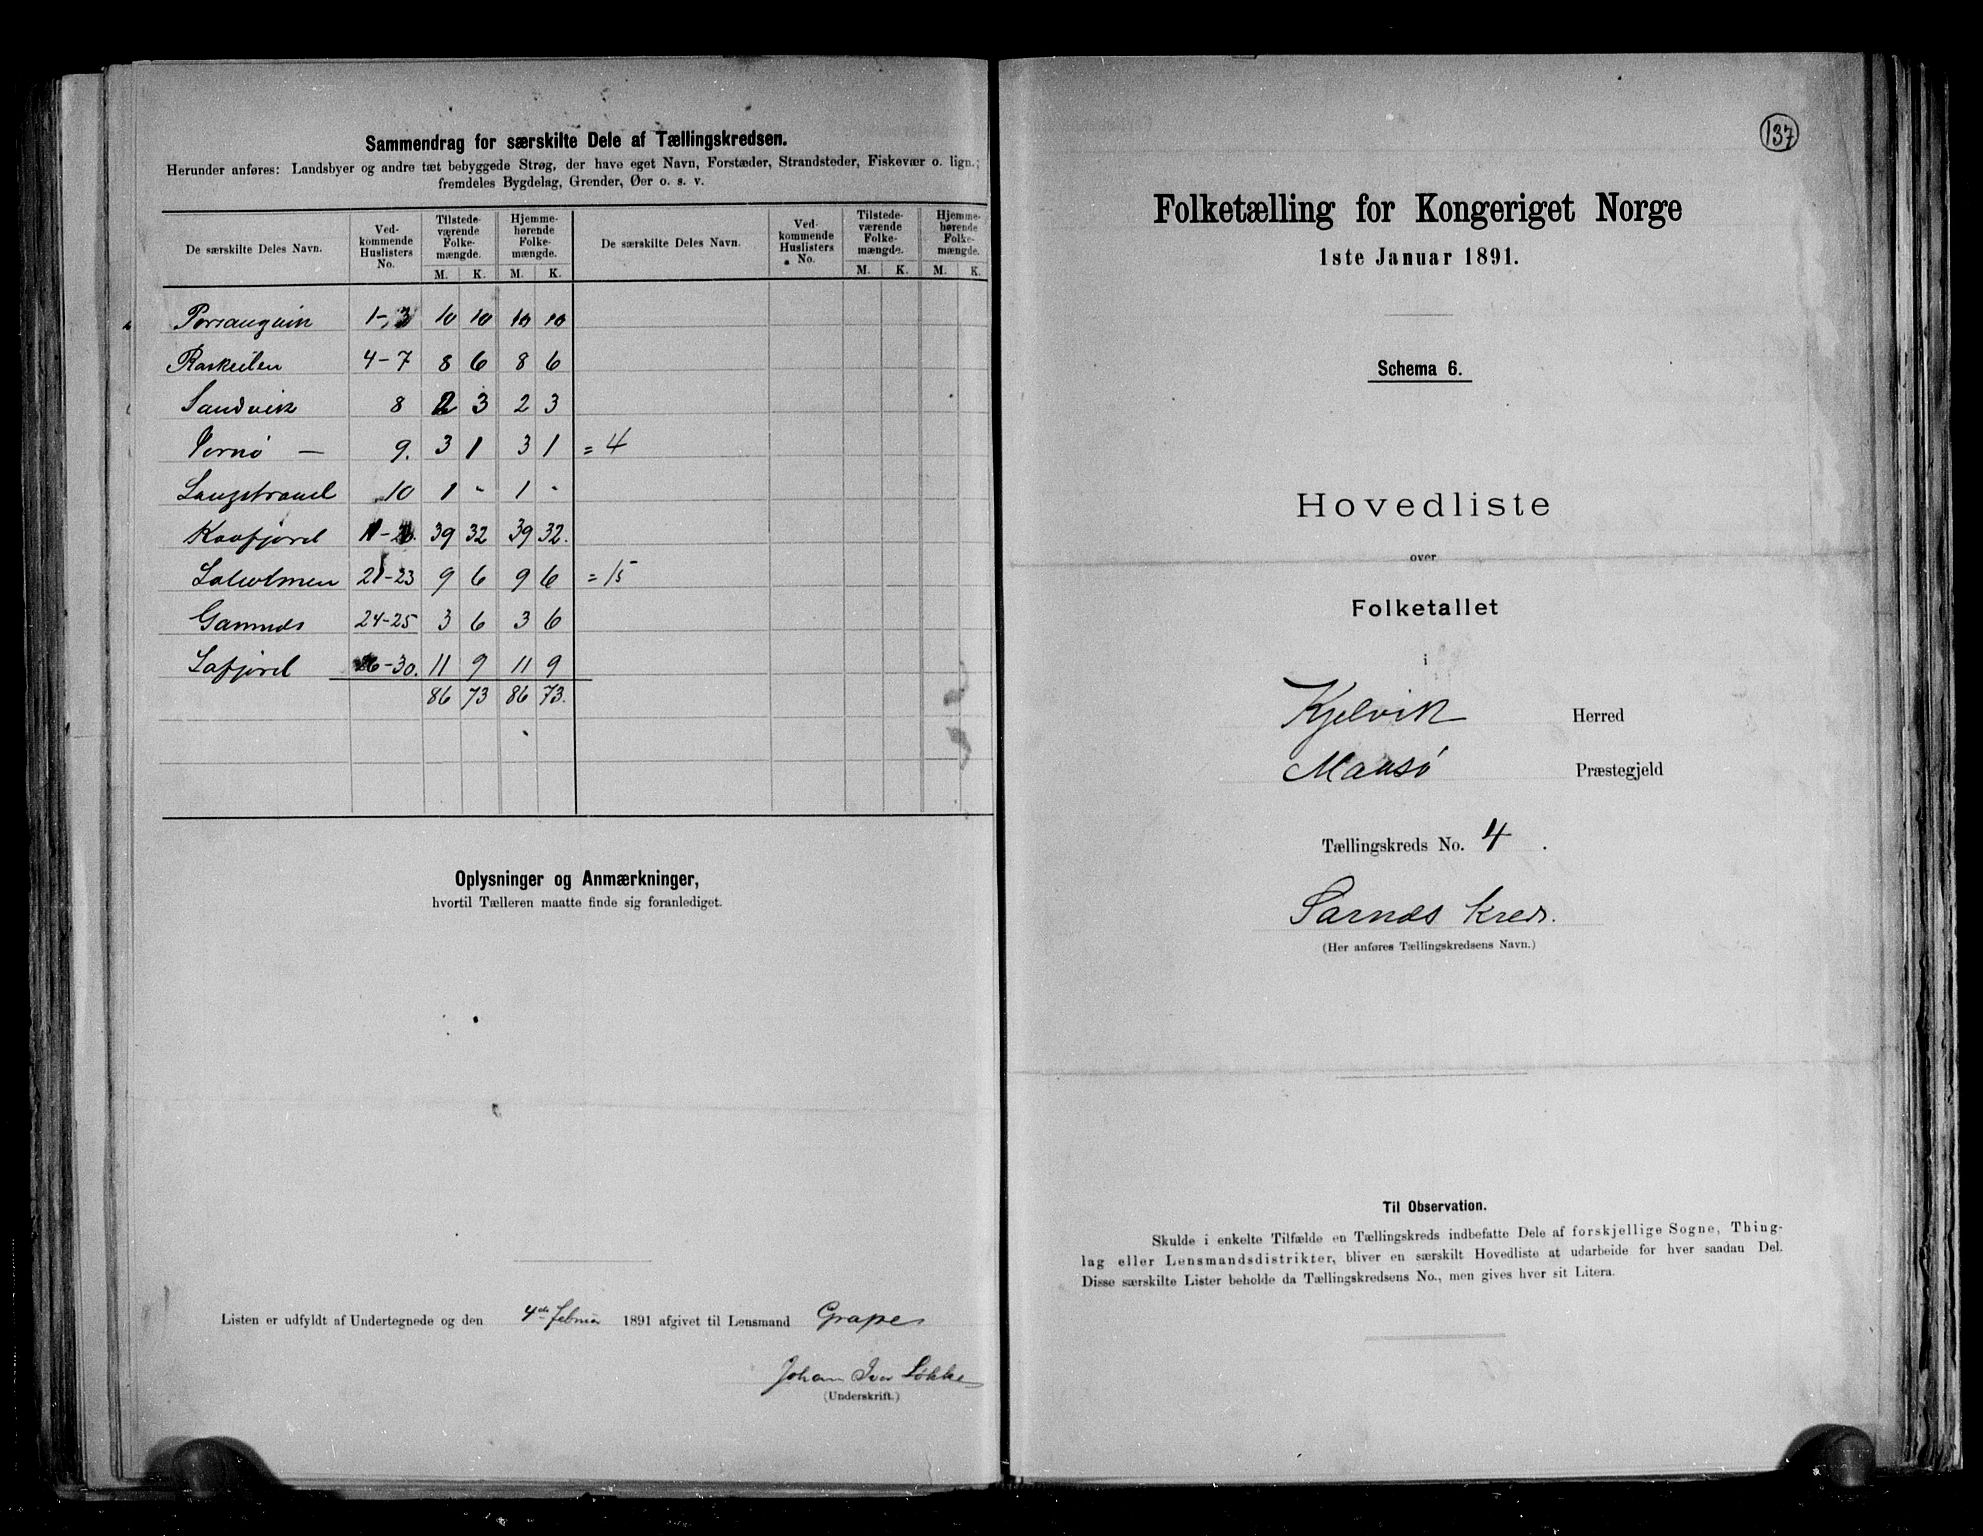 Sammendrag for særskilte Dele af Tællingskredsen.
Herunder anføres: Landsbyer og andre tæt bebyggede Strøg, der have eget Navn, Forstæder, Strandsteder, Fiskevær o. lign.;
fremdeles Bygdelag, Grender, Øer o. s. v.
De særskilte Deles Navn. Ved-kommende Huslisters No. Tilstede-værende Folke-mængde. Hjemme-hørende Folke-mængde. De særskilte Deles Navn. Ved-kommende Huslisters No. Tilstede-værende Folke-mængde. Hjemme-hørende Folke-mængde.
M. K. M. K. M. K. M. K.
1-3 10 10 10 10
4-7 8 6 8 6
Sandvik 8 2 3 2 3
9. 3 1 3 1 = 4
Langstrand 10 1 - 1 -
Kaafjord 39 32 39 32.
21-23 9 6 9 6 = 15
Gamnæs 24-25 3 6 3 6
Lafjord 26-30. 11 9 11 9
86 73 86 73.
Oplysninger og Anmærkninger,
hvortil Tælleren maatte finde sig foranlediget.
Listen er udfyldt af Undertegnede og den 4de Februar 1891 afgivet til Lensmand Grape
Johan Iver Løkke
(Underskrift.)
137
Folketælling for Kongeriget Norge
1ste Januar 1891.
Schema 6.
Hovedliste
over
Folketallet
i
Kjelvik Herred
Maasø Præstegjeld
Tællingskreds No. 4.
Sarnæs kreds.
(Her anføres Tællingskredsens Navn.)
Til Observation.
Skulde i enkelte Tilfælde en Tællingskreds indbefatte Dele af forskjellige Sogne, Thing-
lag eller Lensmandsdistrikter, bliver en særskilt Hovedliste at udarbeide for hver saadan Del.
Disse særskilte Lister beholde da Tællingskredsens No., men gives hver sit Litera.